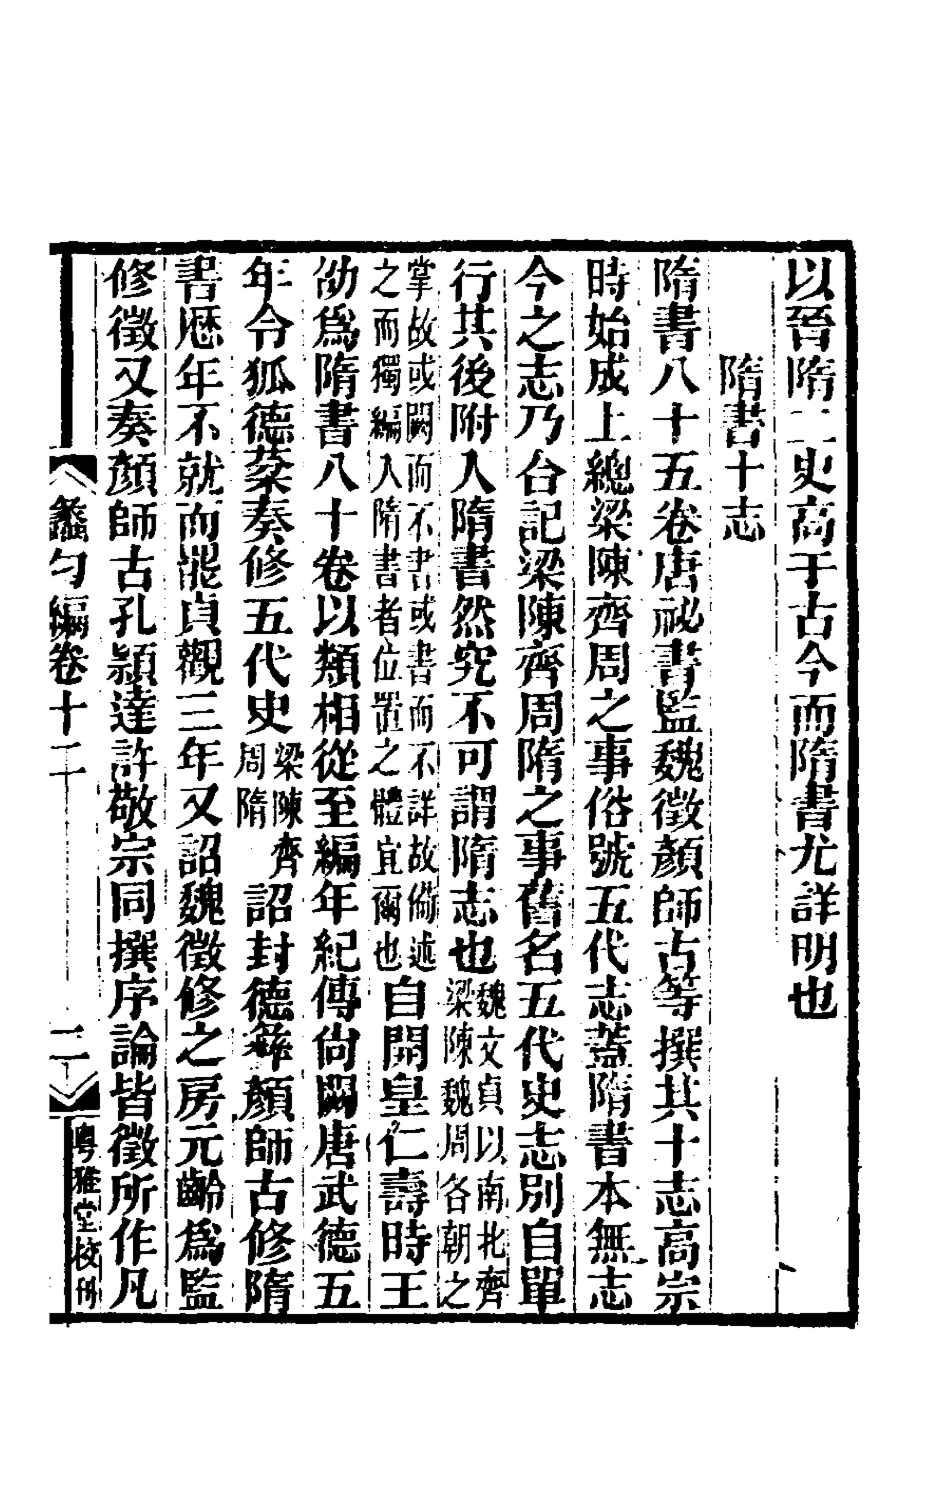 以晉隋二史高于古今而隋書尤詳明也
隋書十志
隋書八十五卷唐祕書監魏徵顏師古等撰其十志高宗
時始成上總梁陳齊周之事俗號五代志蓋隋書本無志
今之志乃合記梁陳齊周隋之事舊名五代史志別自單
行其後附入隋書然究不可謂隋志也魏文貞以南北齊
梁陳魏周各朝之
掌故或闕而不書或書而不詳故備述
之而獨編入隋書者位置之體宜爾也自開皇仁壽時王
劭爲隋書八十卷以類相從至編年紀傳尙闕唐武德五
年令狐德棻奏修五代史梁陳齊
周隋
詔封德彝顏師古修隋
書歷年不就而罷貞觀三年又詔魏徵修之房元齡爲監
修徵又奏顏師古孔穎達許敬宗同撰序論皆徵所作凡
蠡勺編卷十二
二
粵雅堂校刊